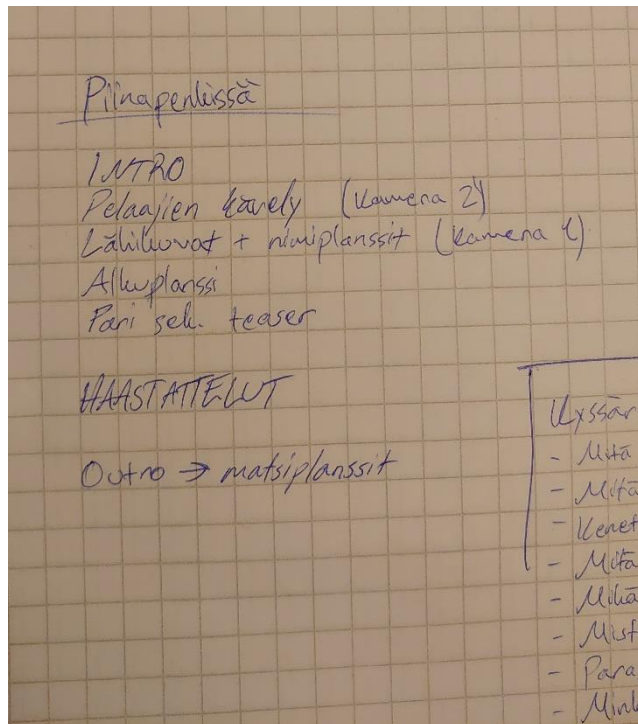 Piinapenkissä
INTRO
Pelaajien kävely (Kamera 2)
Lähikuvat + nimiplanssit (Kamera 1)
Alkuplanssi
Pari sek. teaser
HAASTATTELUT
Outro → matsiplanssit
Kyssär
- Mitä
- Mitä
- Kenet
- Mitä
- Mikä
- Mist
- Para
- Mink